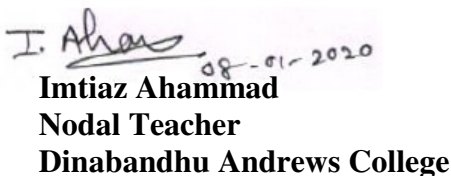 I. Aham
08-01-2020
Imtiaz Ahammad
Nodal Teacher
Dinabandhu Andrews College